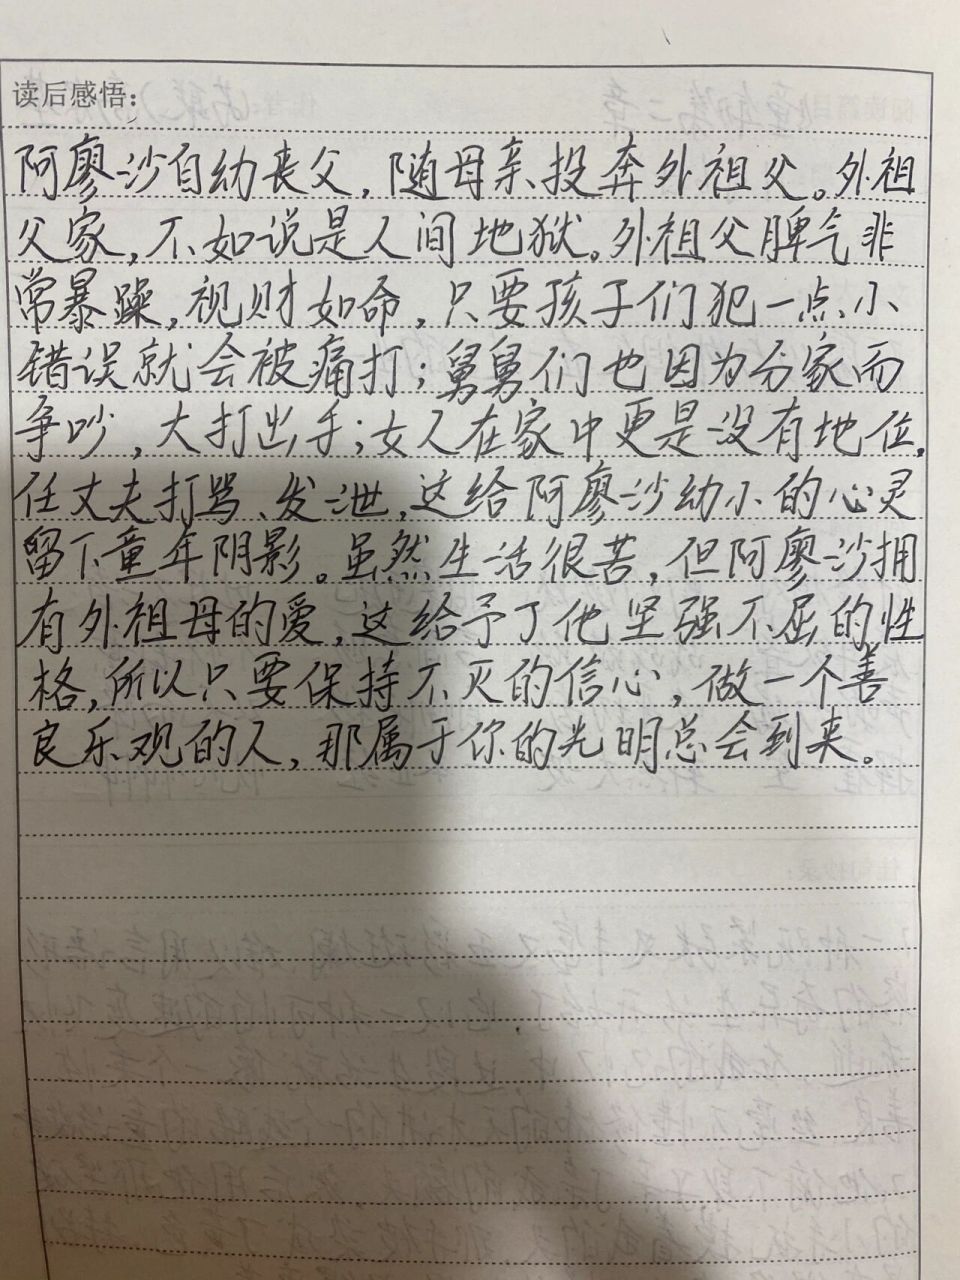 读后感悟：
阿廖沙自幼丧父，随母亲投奔外祖父。外祖
父家，不如说是人间地狱。外祖父脾气非
常暴躁，视财如命，只要孩子们犯一点小
错误就会被痛打；舅舅们也因为分家而
争吵，大打出手；女人在家中更是没有地位，
任丈夫打骂、发泄，这给阿廖沙幼小的心灵
留下童年阴影。虽然生活很苦，但阿廖沙拥
有外祖母的爱，这给予了他坚强不屈的性
格，所以只要保持不灭的信心，做一个善
良乐观的人，那属于你的光明总会到来。